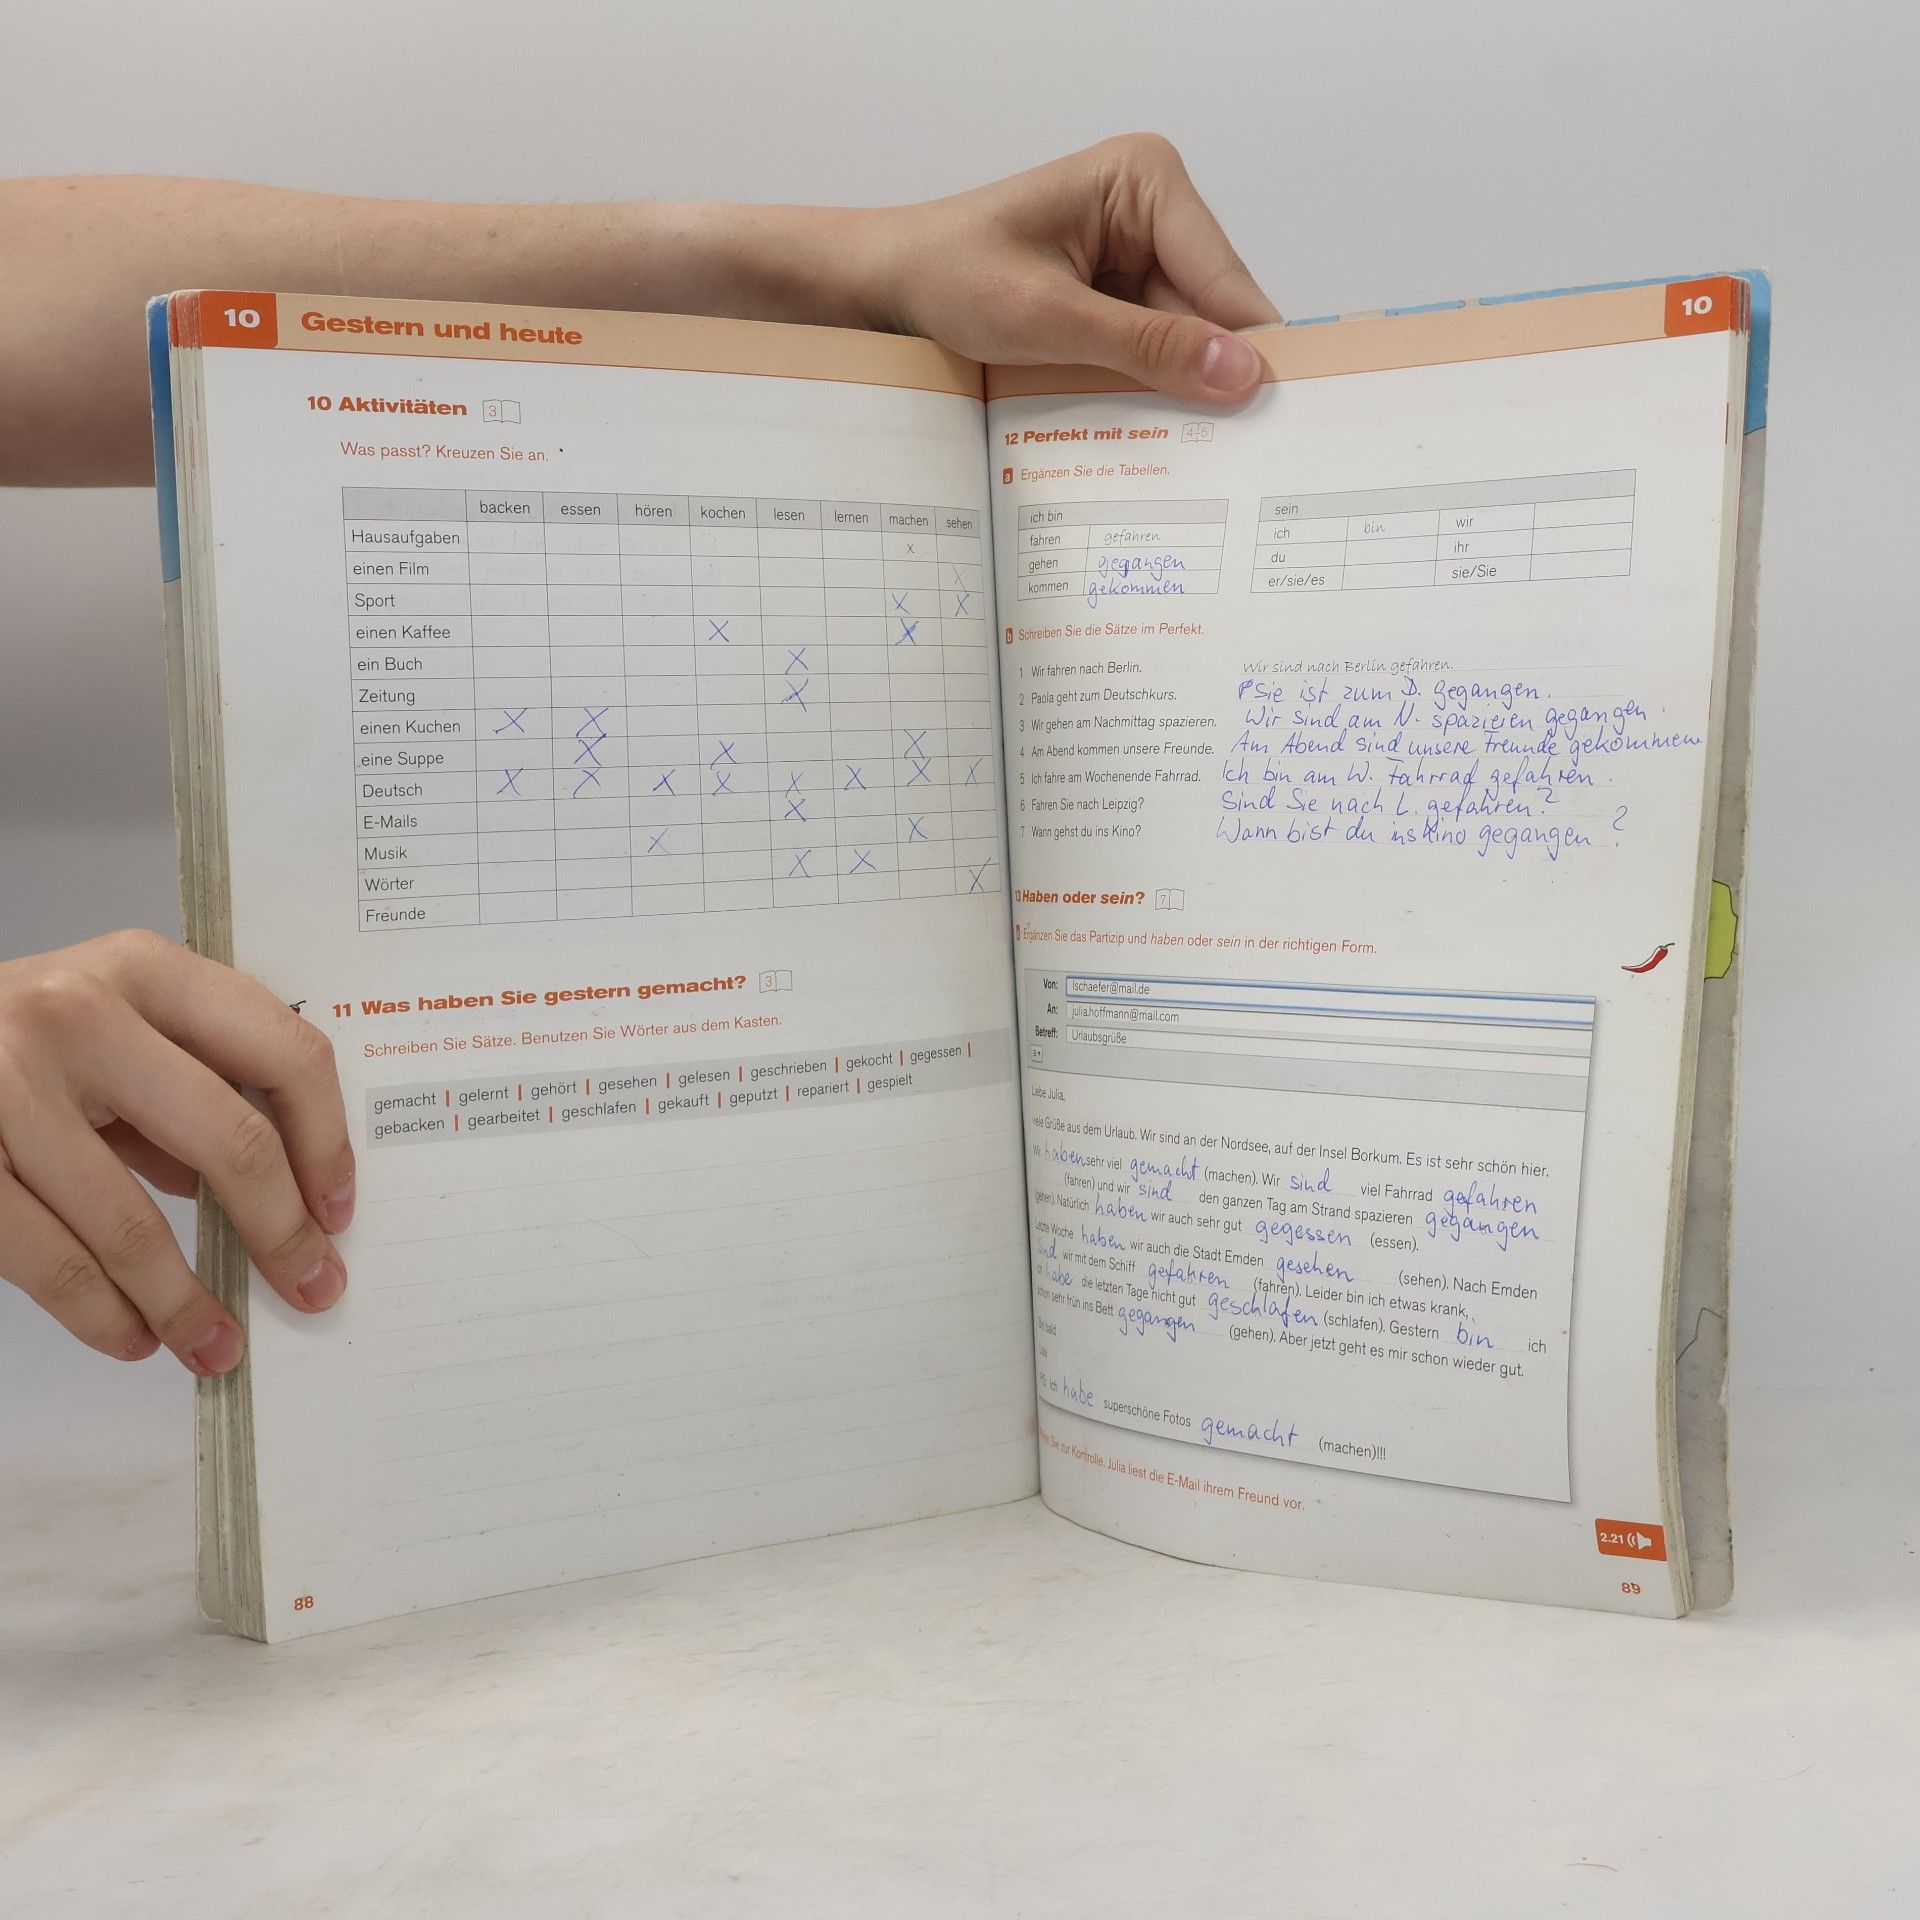 10 Gestern und heute
10 Aktivitäten 3
Was passt? Kreuzen Sie an.
backen essen hören kochen lesen lernen machen sehen
Hausaufgaben x
einen Film X
Sport X X
einen Kaffee X X
ein Buch X
Zeitung X
einen Kuchen X X
eine Suppe X X X
Deutsch X X X X X X X X
E-Mails X
Musik X X
Wörter X X
Freunde X
11 Was haben Sie gestern gemacht? 3
Schreiben Sie Sätze. Benutzen Sie Wörter aus dem Kasten.
gemacht | gelernt | gehört | gesehen | gelesen | geschrieben | gekocht | gegessen |
gebacken | gearbeitet | geschlafen | gekauft | geputzt | repariert | gespielt
88
10
12 Perfekt mit sein 4-5
a Ergänzen Sie die Tabellen.
ich bin
fahren gefahren
gehen gegangen
kommen gekommen
sein
ich bin wir
du ihr
er/sie/es sie/Sie
b Schreiben Sie die Sätze im Perfekt.
1 Wir fahren nach Berlin. Wir sind nach Berlin gefahren.
2 Paola geht zum Deutschkurs. Sie ist zum D. gegangen.
3 Wir gehen am Nachmittag spazieren. Wir sind am N. spazieren gegangen.
4 Am Abend kommen unsere Freunde. Am Abend sind unsere Freunde gekommen
5 Ich fahre am Wochenende Fahrrad. Ich bin am W. Fahrrad gefahren.
6 Fahren Sie nach Leipzig? Sind Sie nach L. gefahren?
7 Wann gehst du ins Kino? Wann bist du ins Kino gegangen?
13 Haben oder sein? 7
a Ergänzen Sie das Partizip und haben oder sein in der richtigen Form.
Von: lschaefer@mail.de
An: julia.hoffmann@mail.com
Betreff: Urlaubsgrüße
Liebe Julia,
viele Grüße aus dem Urlaub. Wir sind an der Nordsee, auf der Insel Borkum. Es ist sehr schön hier.
Wir haben sehr viel gemacht (machen). Wir sind viel Fahrrad gefahren
(fahren) und wir sind den ganzen Tag am Strand spazieren gegangen
(gehen). Natürlich haben wir auch sehr gut gegessen (essen).
Letzte Woche haben wir auch die Stadt Emden gesehen (sehen). Nach Emden
sind wir mit dem Schiff gefahren (fahren). Leider bin ich etwas krank,
ich habe die letzten Tage nicht gut geschlafen (schlafen). Gestern bin ich
schon sehr früh ins Bett gegangen (gehen). Aber jetzt geht es mir schon wieder gut.
Bis bald
PS: Ich habe superschöne Fotos gemacht (machen)!!!
Sie zur Kontrolle. Julia liest die E-Mail ihrem Freund vor.
2.21
89